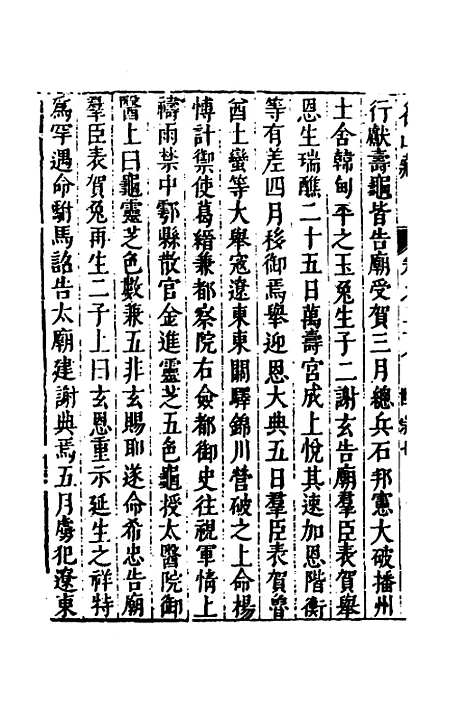 行獻壽龜皆告廟受賀三月總兵石邦憲大破播州
士舍韓甸平之玉兔生子二謝玄告廟羣臣表賀舉
恩生瑞醮二十五日萬壽宮成上悅其速加恩階銜
等有差四月移御焉舉迎恩大典五日羣臣表賀
酋土蠻等大舉寇遼東東關驛錦川營破之上命楊
博計禦使葛縉兼都察院右僉都御史往視軍情上
禱雨禁中鄠縣散官金進靈芝五色龜授太醫院御
醫上曰龜靈芝色數兼五非玄賜耶遂命希忠告廟
羣臣表賀兔再生二子上曰玄恩重示延生之祥特
爲罕遇命駙馬詔告太廟建謝典焉五月虜犯遼東